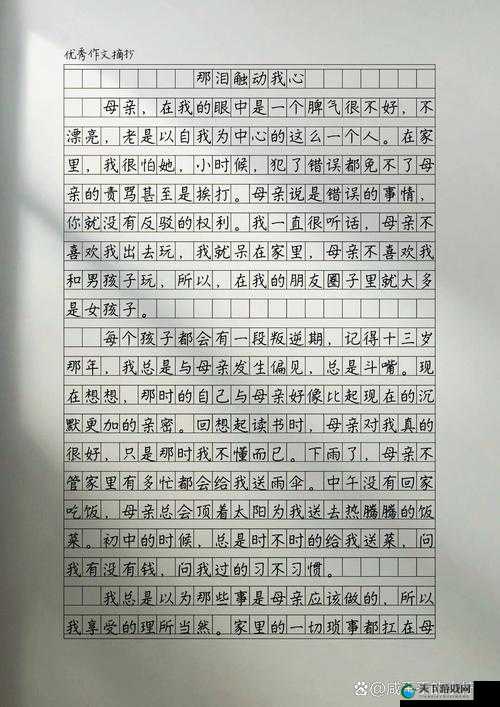 优秀作文摘抄
那泪触动我心
母亲，在我的眼中是一个脾气很不好，不
漂亮，老是以自我为中心的这么一个人。在家
里，我很怕她，小时候，犯了错误都免不了母
亲的责骂甚至是挨打。母亲说是错误的事情，
你就没有反驳的权利。我一直很听话，母亲不
喜欢我出去玩，我就呆在家里，母亲不喜欢我
和男孩子玩，所以，在我的朋友圈子里就大多
是女孩子。
每个孩子都会有一段叛逆期，记得十三岁
那年，我总是与母亲发生偏见，总是斗嘴。现
在想想，那时的自己与母亲好像比起现在的沉
默更加的亲密。回想起读书时，母亲对我真的
很好，只是那时我不懂而已。下雨了，母亲不
管家里有多忙都会给我送雨伞。中午没有回家
吃饭，母亲总会顶着太阳为我送去热腾腾的饭
菜。初中的时候，总是时不时的给我送菜，问
我有没有钱，问我过的习不习惯。
我总是以为那些事是母亲应该做的，所以
我享受的理所当然。家里的一切琐事都扛在母
天下游戏网